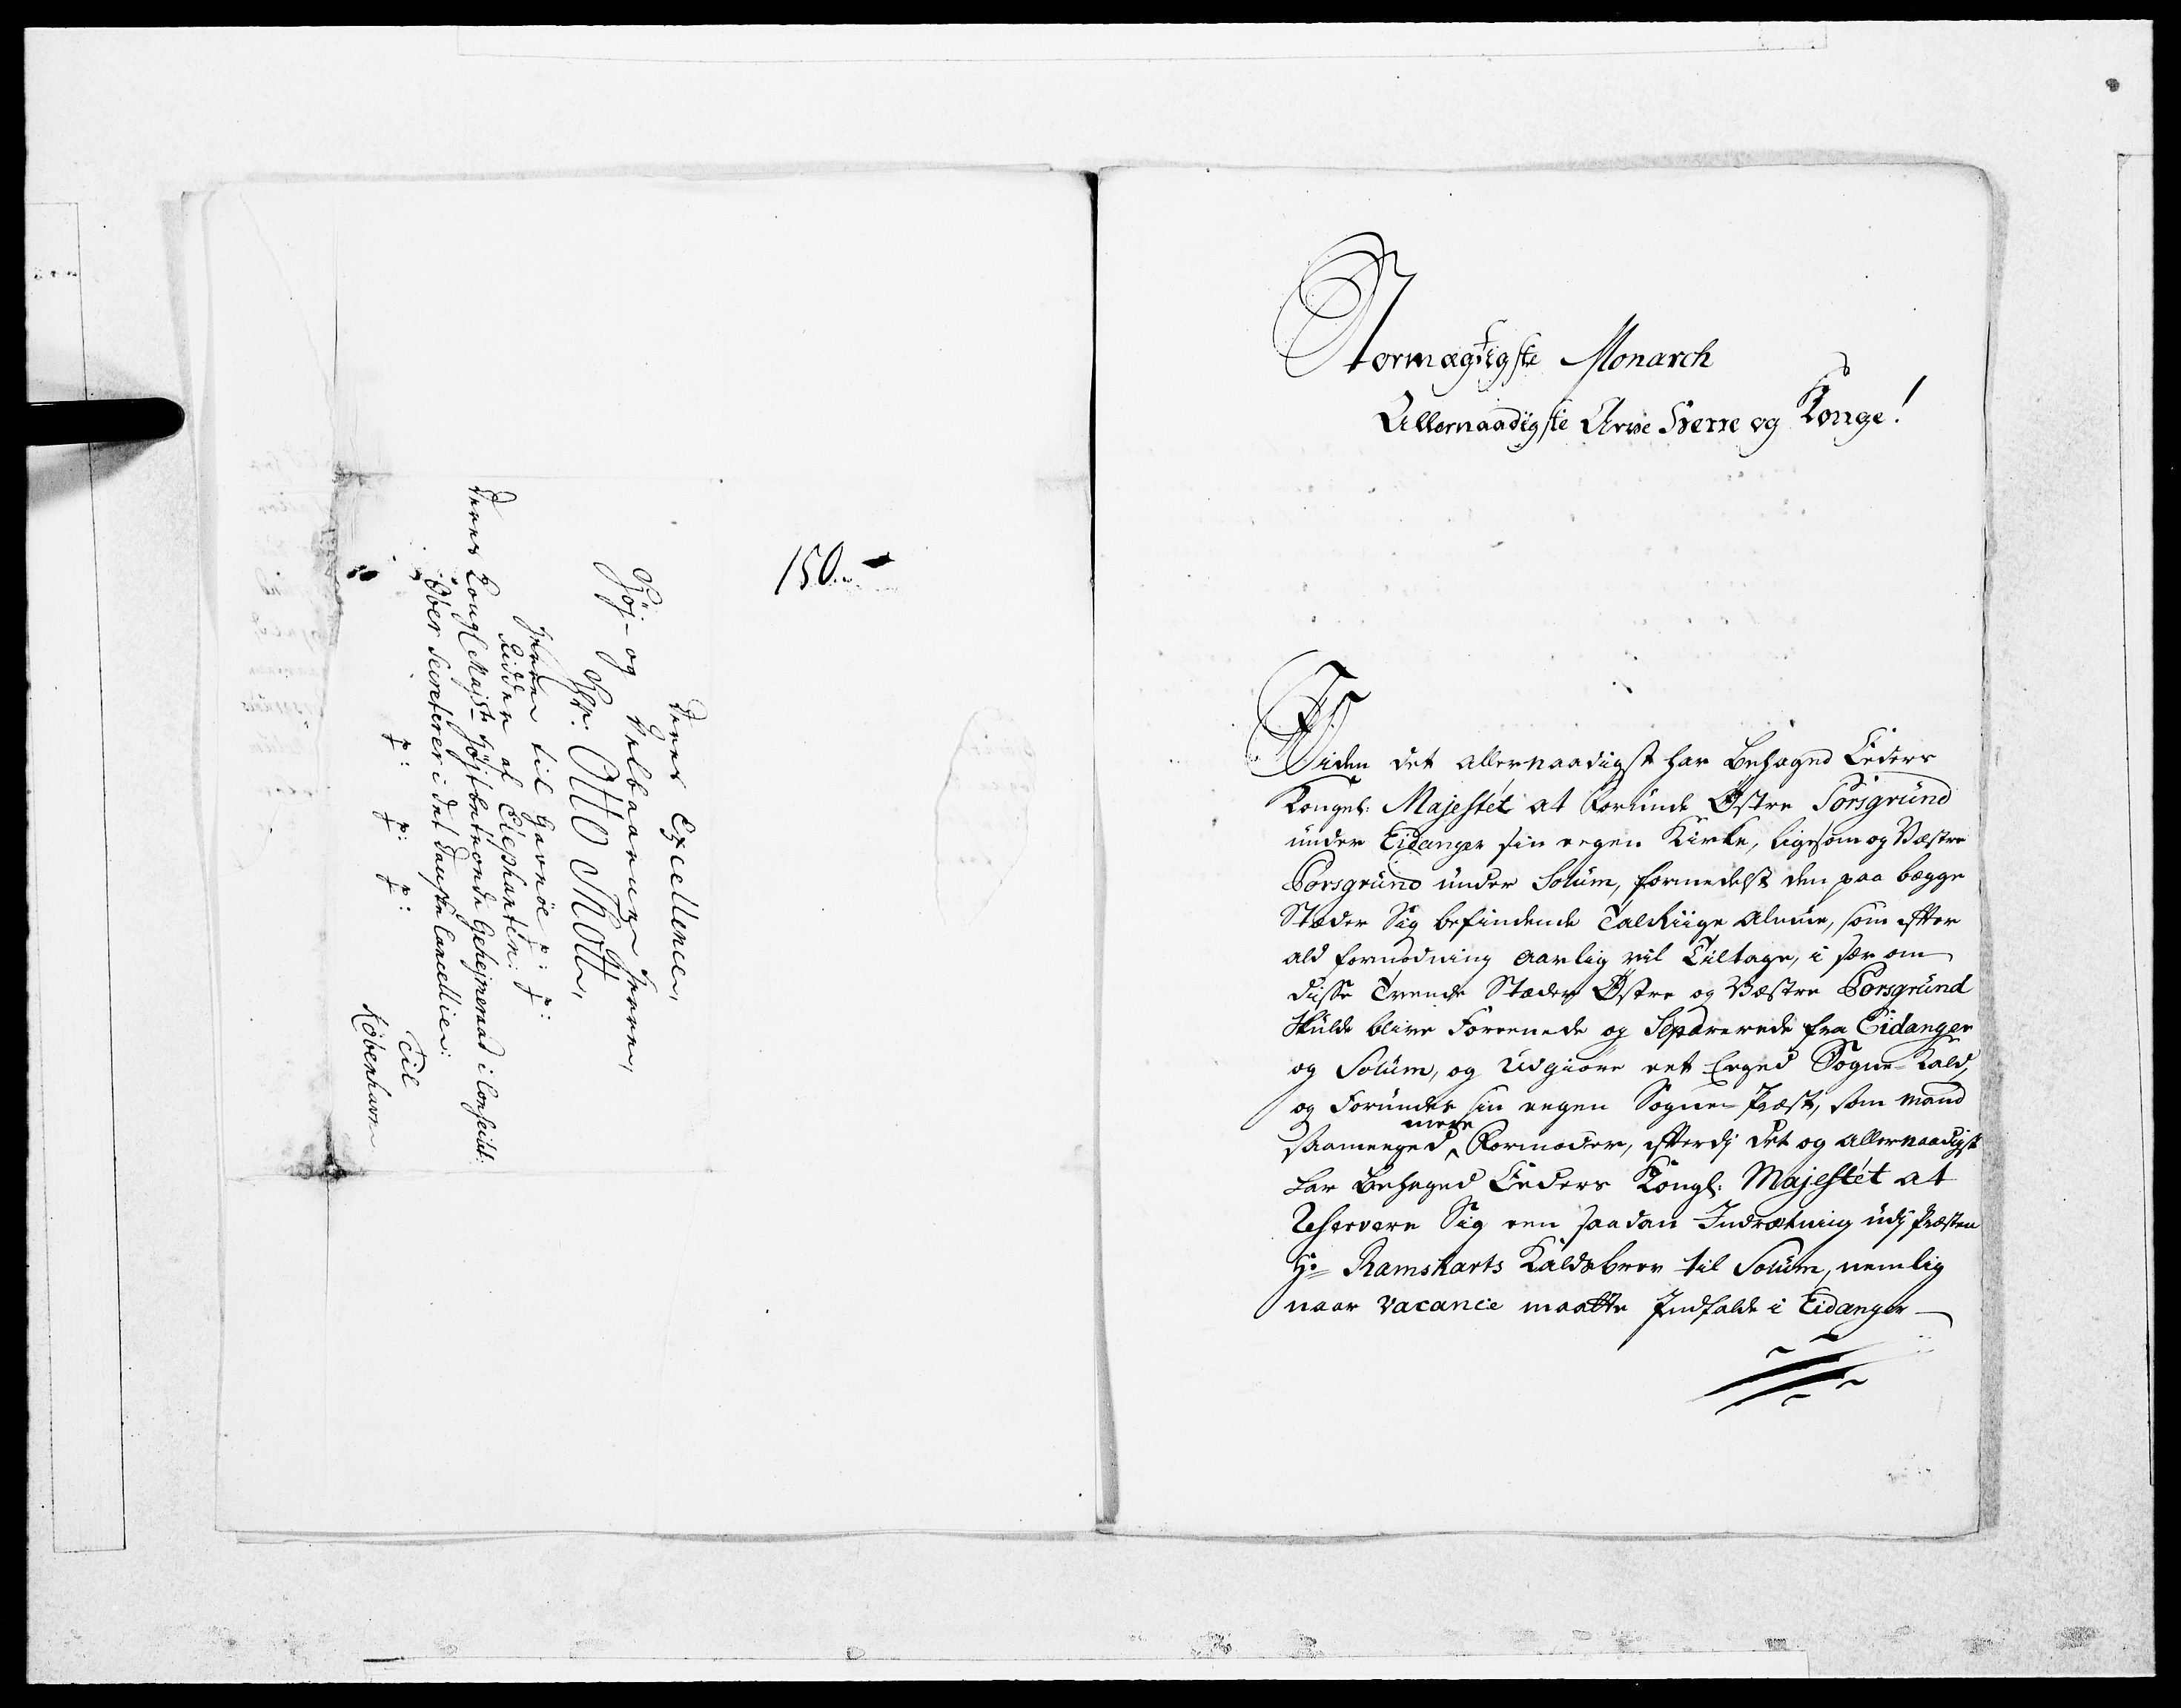 150.
Deres Excellence,
Høj- og Velbaarne Herre,
Hr. Otto Thott,
Herre til Gavnöe p: p:
Ridder af Elephanten:
Deres Kongl Majsts Højstbetroede Gehejmeraad i Conseilet:
Ober Secreterer i det Danske Cancellie:
p: p: p:
Til
Kiöbenhavn
Stormægtigste Monarch
Allernaadigste Arve Herre og Konge!
Siden det allernaadigst har behaged Eders
Kongel: Majestét at forunde Østre Porsgrund
under Eidanger sin eegen Kirke, ligesom og Væstre
Porsgrund under Solum, formedelst den paa begge
Stæder Sig befindende Talriige Almue, som efter
ald formodning aarlig vil Tiltage, i sær om
disse Tvende Stæder Østre og Væstre Porsgrund
skulde blive Foreenede og Separerede fra Eidanger
og Solum, og udgiøre eet Eeged Sogne-Kald,
og Forundes sin eegen Sogne-Præst, som mand
saameeged mere Formoder, efterdj det og allernaadigst
har behaged Eders Kongl: Majestét at
Reservere Sig een saadan Indretning udj Præsten
Hr Ramsharts Kaldsbrev til Solum, nemlig
naar vacance maatte Indfalde i Eidanger